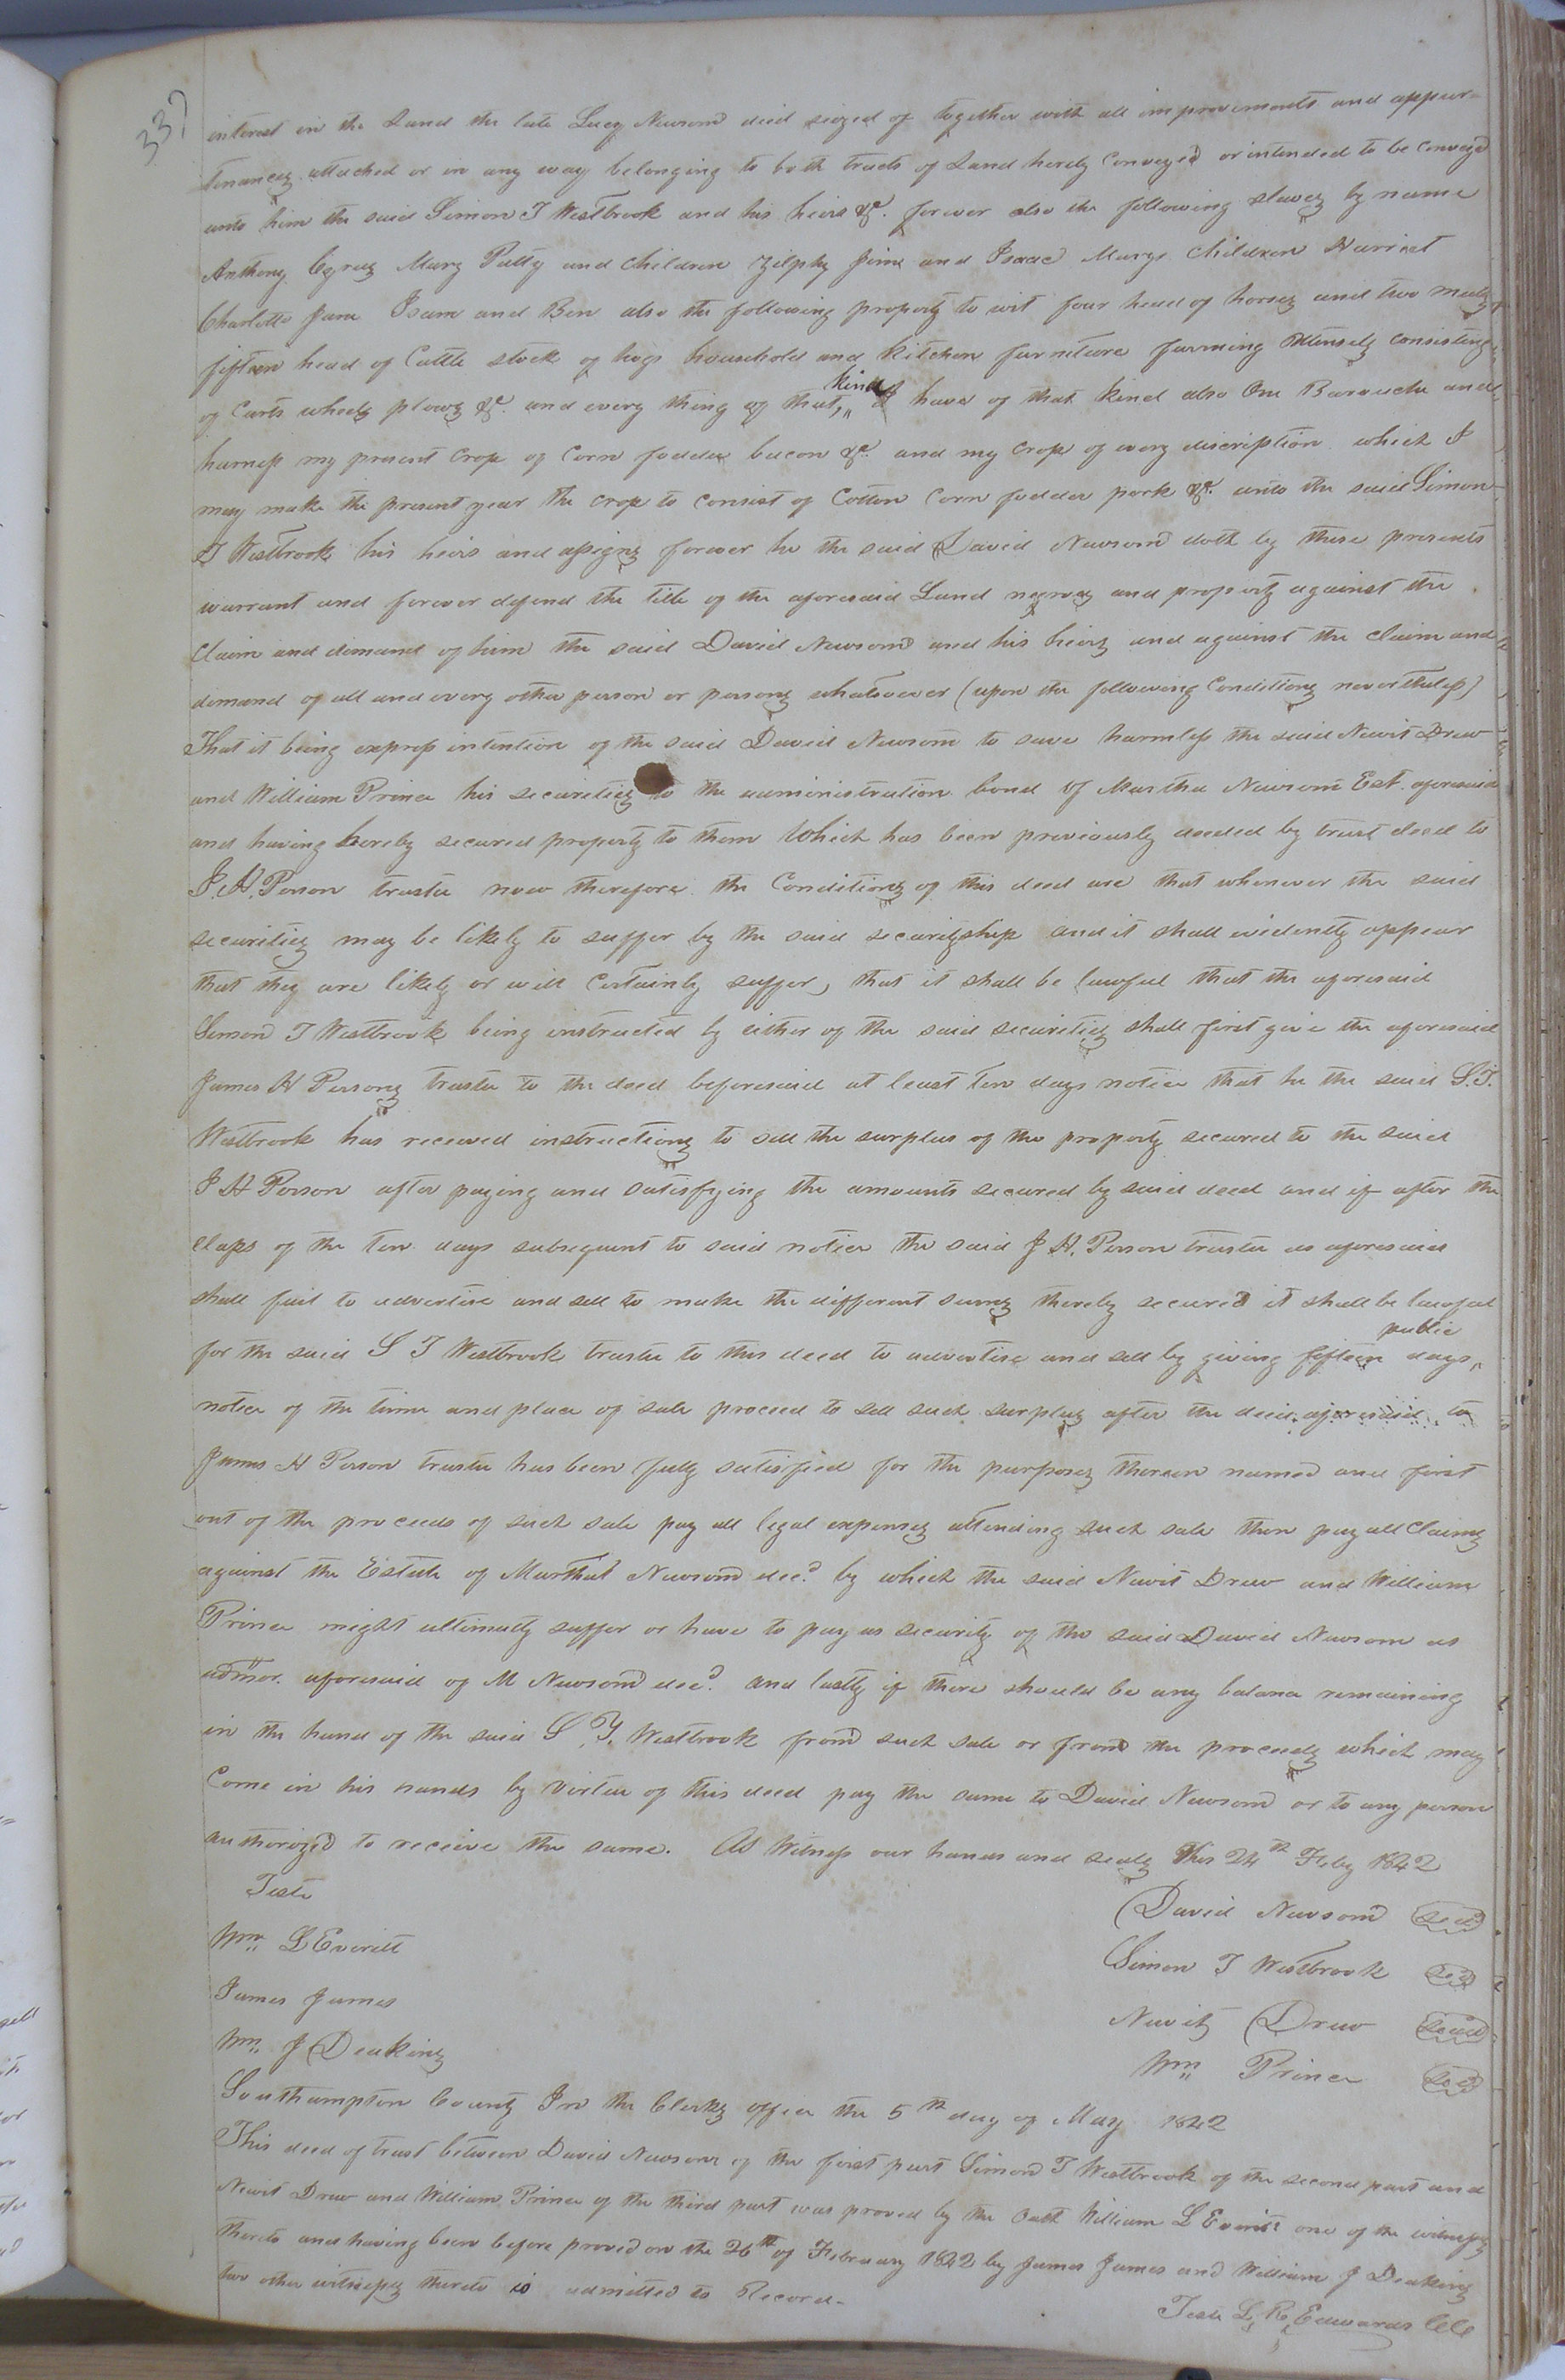 337
interest in the Land the late Lucy Newsom died seized of together with all improvements and appur-
tenances attached or in any way belonging to both tracts of Land hereby Conveyed or intended to be Conveyed
unto him the said Simon T Westbrook and his heirs &c. forever also the following slaves by name
Anthony Cyrus Mary Patty and Children Zilphy Jim and Isaac Marys Children Harriet
Charlotte Jane Isam and Ben also the following property to wit four head of horses and two mules
fifteen head of Cattle stock of hogs household and kitchen furniture farming utensels consisting
of Carts wheels plows &c. and every thing of that, kind I have of that kind also One Barouche and
harness my present Crop of Corn fodder bacon &c. and my crop of every discription which I
may make the present year the crop to consist of Cotton Corn fodder pork &c. unto the said Simon
T Westbrook his heirs and assigns forever he the said David Newsom doth by these presents
warrant and forever defend the title of the aforesaid Land negroes and property against the
Claim and demand of him the said David Newsom and his heirs and against the Claim and
demand of all and every other person or persons whatsoever (upon the following Conditions nevertheless)
That it being express intention of the said David Newsom to save harmless the said Newit Drew
and William Prince his securities to the administration bond of Martha Newsom Est. aforesaid
and having hereby secured property to them Which has been previously deeded by trust deed to
J. H. Person trustee now therefore the Conditions of this deed are that whenever the said
securities may be likely to suffer by the said securityship and it shall evidently appear
that they are likely or will Certainly suffer, that it shall be lawful that the aforesaid
Simon T Westbrook being instructed by either of the said securities shall first give the aforesaid
James H Persons trustee to the deed beforesaid at least Ten days notice that he the said S. T.
Westbrook has received instructions to sell the surplus of the property secured to the said
J H Person after paying and satisfying the amounts secured by said deed and if after the
elaps of the Ten days subsequent to said notice the said J H. Person trustee as aforesaid
shall fail to advertise and sell to make the different sums thereby secured it shall be lawful
for the said S T Westbrook trustee to this deed to advertise and sell by giving fifteen days public
notice of the time and place of sale proceed to sell such surplus after the deed aforesaid to
James H Person trustee has been fully satisfied for the purposes therein named and first
out of the proceeds of such sale pay all legal expenses attending such sale then pay all Claims
against the Estate of Martha Newsom decd. by which the said Newit Drew and William
Prince might ultimatly suffer or have to pay as security of the said David Newsom as
admor. aforesaid of M Newsom decd. and lastly if there should be any balance remaining
in the hand of the said S T. Westbrook from such sale or from the proceeds which may
Come in his hands by Virtue of this deed pay the same to David Newsom or to any person
authorized to receive the same. As Witness our hands and seals This 24th Feby 1842
Teste
David Newsom Seal
Wm L Everitt
Simon T Westbrook Seal
James James
Newit Drew Seal
Wm J Deakins
Wm Prince Seal
Southampton County In the Clerks office the 5th day of May 1842
This deed of trust between David Newsom of the first part Simon T Westbrook of the second part and
Newit Drew and William Prince of the third part was proved by the Oath William L Everitt one of the witnesses
thereto and having been before proved on the 26th of February 1842 by James James and William J Deakins
two other witnesses thereto is admitted to Record-
Teste L. R. Edwards CC